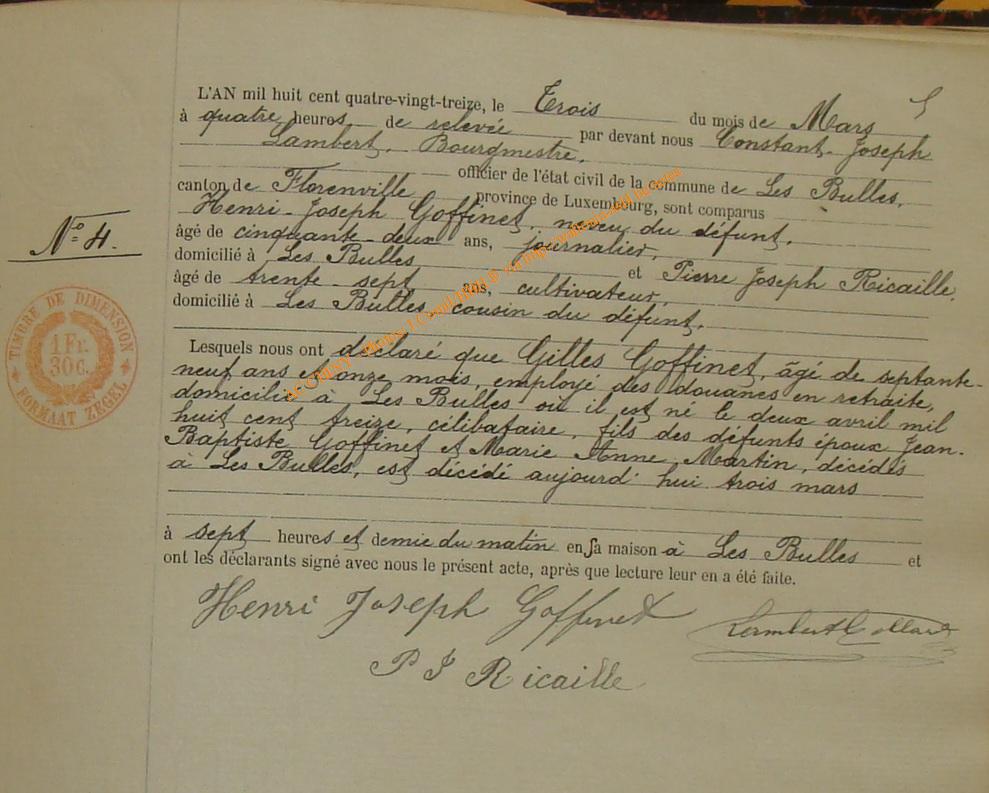 L'AN mil huit cent quatre-vingt-treize, le Trois du mois de Mars
à quatre heures de relevée par devant nous Constant-Joseph
Lambert, Bourgmestre,
officier de l'état civil de la commune de Les Bulles,
canton de Florenville province de Luxembourg, sont comparus
Henri-Joseph Goffinet, neveu du défunt,
âgé de cinquante-deux ans, journalier,
domicilié à Les Bulles et Pierre Joseph Ricaille,
âgé de trente-sept ans, cultivateur,
domicilié à Les Bulles, cousin du défunt,
Lesquels nous ont déclaré que Gilles Goffinet, âgé de septante-
neuf ans et onze mois, employé des douanes en retraite,
domicilié à Les Bulles où il est né le deux avril mil
huit cent treize, célibataire, fils des défunts époux Jean-
Baptiste Goffinet et Marie Anne Martin, décédés
à Les Bulles, est décédé aujourd'hui trois mars
à sept heures et demie du matin en sa maison à Les Bulles et
ont les déclarants signé avec nous le présent acte, après que lecture leur en a été faite.
Henri Joseph Goffinet
P J Ricaille
N° 4.
TIMBRE DE DIMENSION
1 Fr.
30 C.
FORMAAT ZEGEL